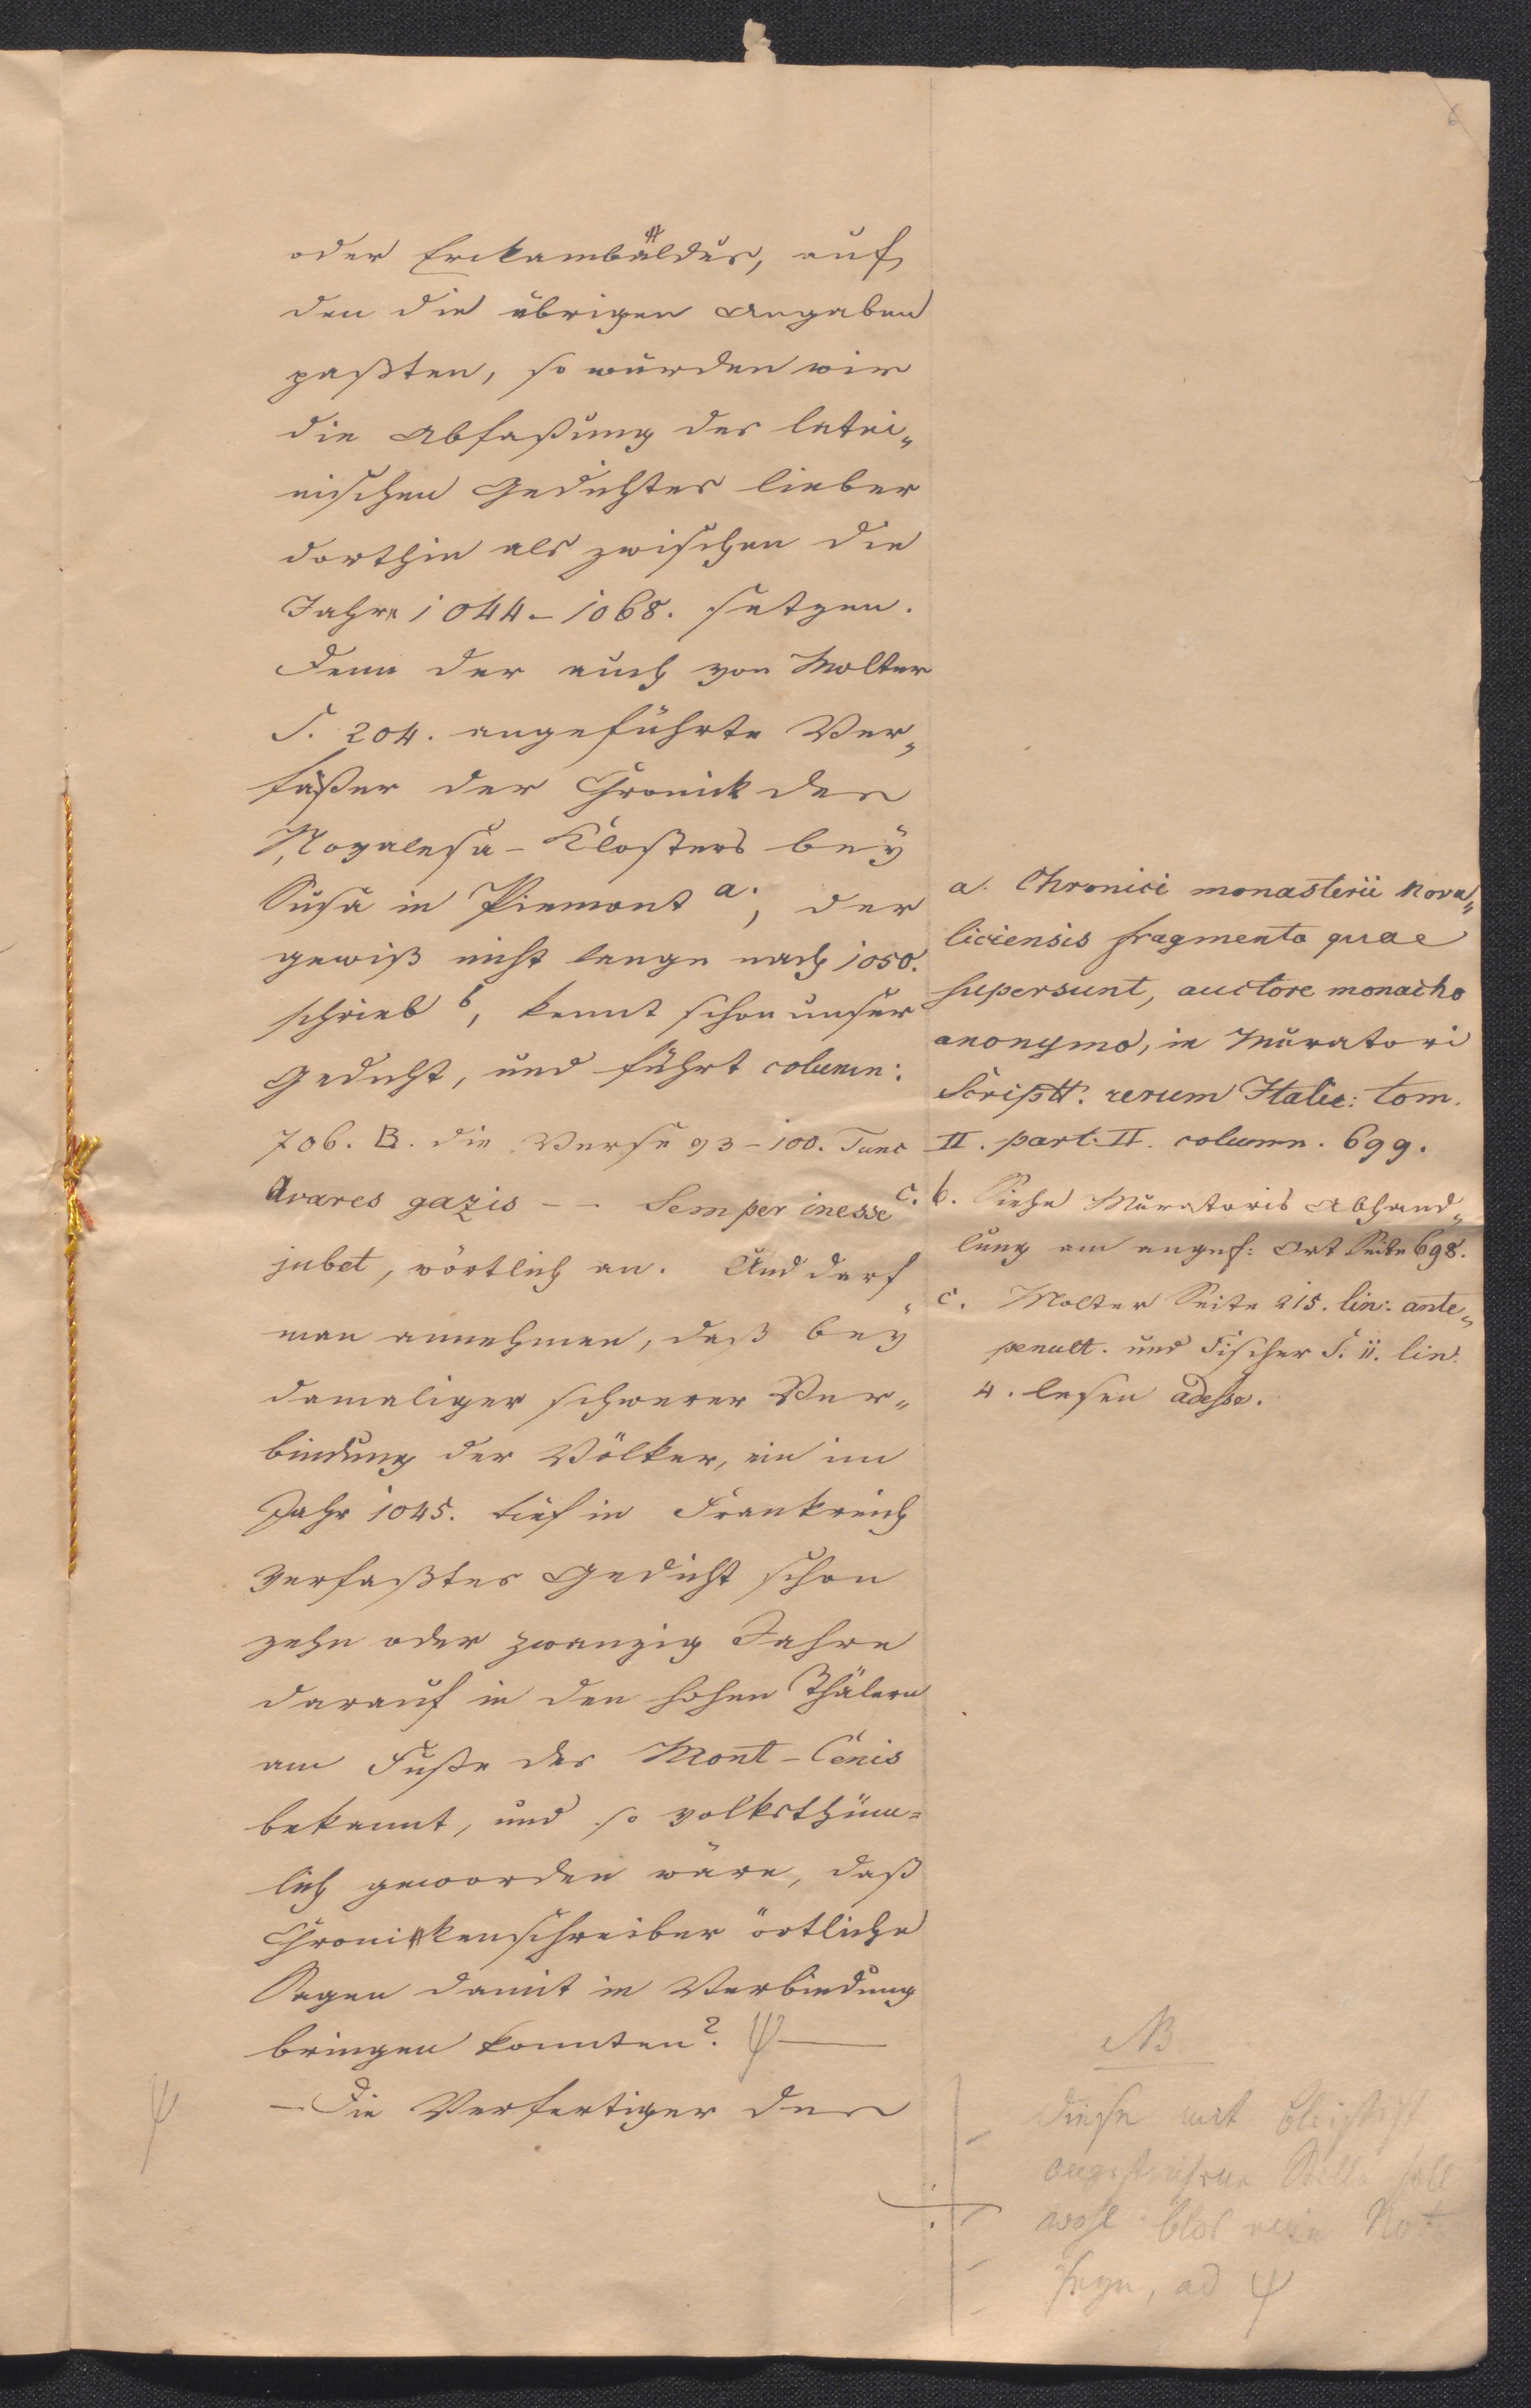 6
oder Erckambaldus, auf
den die übrigen Angaben
paßten, so würden wir
die Abfaßung des latei„
nischen Gedichtes lieber
dorthin als zwischen die
Jahre 1044–1068. setzen.
Denn der auch von Molter
S. 204. angeführte Ver„
faßer der Chronick des
Novalesa-Klosters bey
Susa in Piemont a., der
gewiß nicht lange nach 1050.
schrieb b, kennt schon unser
Gedicht, und führt column:
706. B. die Verse 93–100. Tunc
Avares gazis – – Semper inesse c.
jubet, wörtlich an. Und darf
man annehmen, daß bey
damaliger schwerer Ver„
bindung der Völker, ein im
Jahr 1045. tief in Frankreich
verfaßtes Gedicht schon
zehn oder zwanzig Jahre
darauf in den hohen Thälern
am Fuße des Mont-Cenis
bekannt, und so volksthüm=
lich geworden wäre, daß
Chronickenschreiber örtliche
Sagen damit in Verbindung
bringen konnten? ψ —
ψ
– Die Verfertiger des
a. Chronici monasterii Nova„
liciensis fragmenta quae
supersunt, auctore monacho
anonymo, in Muratori
Scriptt. rerum Italic: tom.
II. part. II. column. 699.
b. Siehe Muratoris Abhand„
lung am angef: Ort Seite 698.
c. Molter Seite 215. lin: ante„
penult. und Fischer S. 11. lin.
4. lesen adesse.
NB
diese mit Bleystift
angestrichene Stelle soll
wohl blos eine Not
seyn, ad ψ